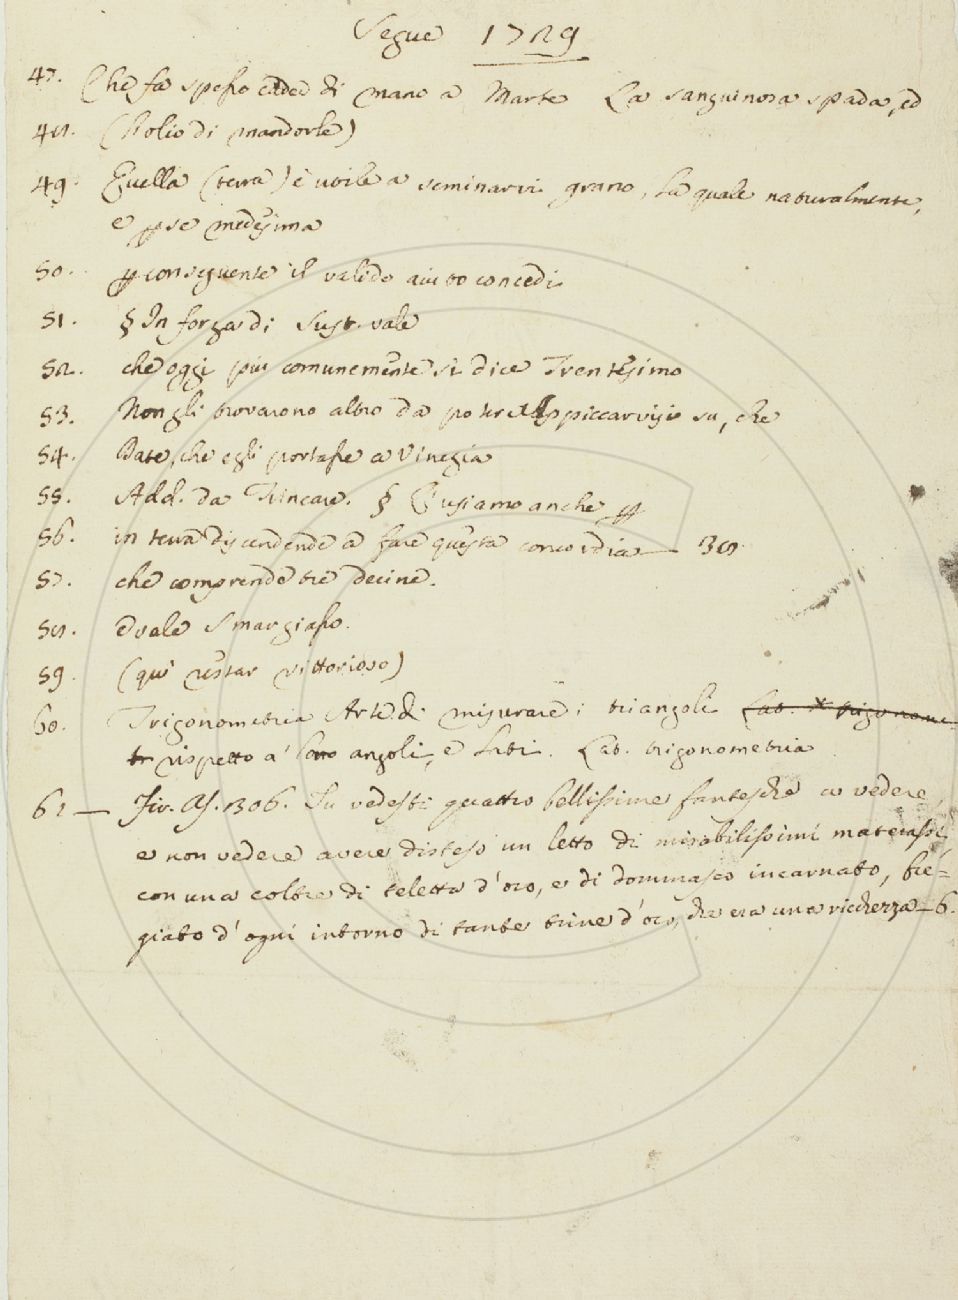 Segue 1729
47. Che fa spesso cader di mano a Marte La sanguinosa spada, ed
48. (d'olio di mandorle)
49. Quella (terra) è utile a seminarvi grano, la quale naturalmente,
e p se medesima
50. p conseguente il valido aiuto concedi
51. § In forza di Sust. vale
52. che oggi più comunemente si dice Trentesimo
53. Non gli trovarono altro da poter appiccarvisi su, che
54. Date, che egli portasse a Vinegia
55. Add. da Trincare. § E usiamo anche p
56. in terra discendendo a fare questa concordia — 38.
57. che comprende tre decine.
58. e vale Smargiasso.
59. (qui restar vittorioso)
60. Trigonometria Arte di misurare i triangoli Lat. * trigonome
tr rispetto a' loro angoli, e lati. Lat. trigonometria
61 — Fir. As. 306. Tu vedesti quattro bellissime fantesche a vedere,
e non vedere avere disteso un letto di mirabilissimi materassi,
con una coltre di teletta d'oro, e di dommasco incarnato, fre=
giato d'ogni intorno di tante trine d'oro, che era una ricchezza — 6.